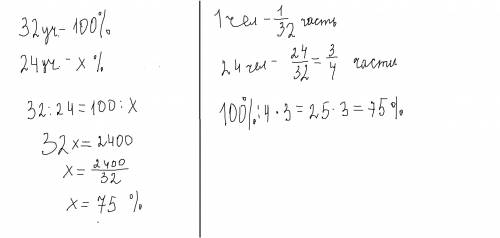 32 уч - 100%
24 уч - x %
32 : 24 = 100 : x
32x = 2400
x = 2400/32
x = 75 %
1 чел - 1/32 часть
24 чел - 24/32 = 3/4 части
100% : 4 · 3 = 25 · 3 = 75 %